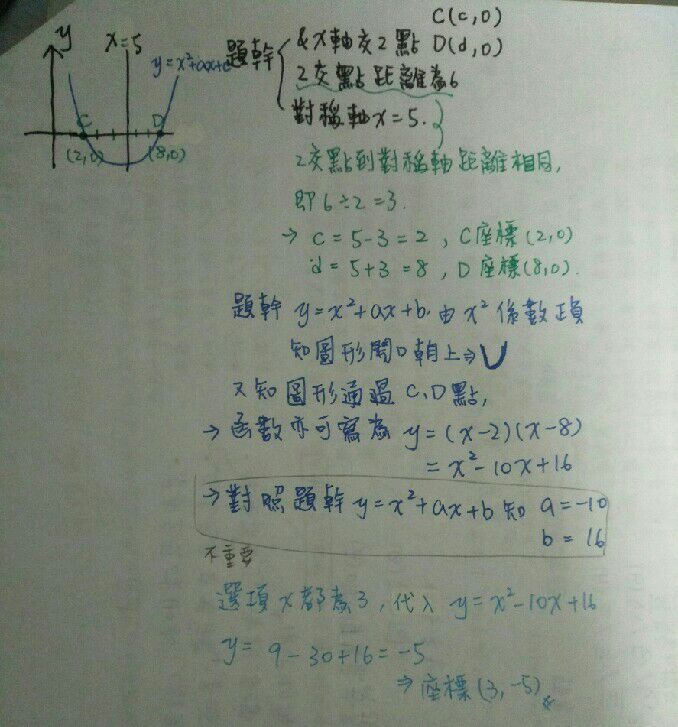 y
x=5
y=x²+ax+b
C
D
(2,0)
(8,0)
C(c,0)
題幹
與x軸交2點 D(d,0)
2交點距離為6
對稱軸x=5.
2交點到對稱軸距離相同,
即6÷2=3.
→ c=5-3=2, C座標(2,0)
d=5+3=8, D座標(8,0).
題幹 y=x²+ax+b. 由x²係數正負
知圖形開口朝上⇒∪
又知圖形通過C,D點,
→ 函數亦可寫為 y=(x-2)(x-8)
=x²-10x+16
→ 對照題幹y=x²+ax+b知 a=-10
b=16
不重要
選項x都為3, 代入 y=x²-10x+16
y=9-30+16=-5
⇒座標(3,-5)